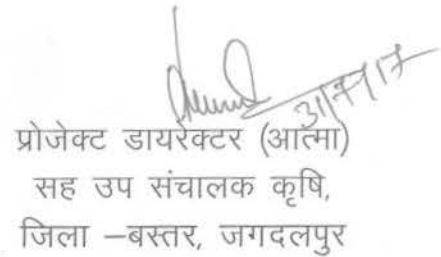 प्रोजेक्ट डायरेक्टर (आत्मा)
सह उप संचालक कृषि,
जिला –बस्तर, जगदलपुर